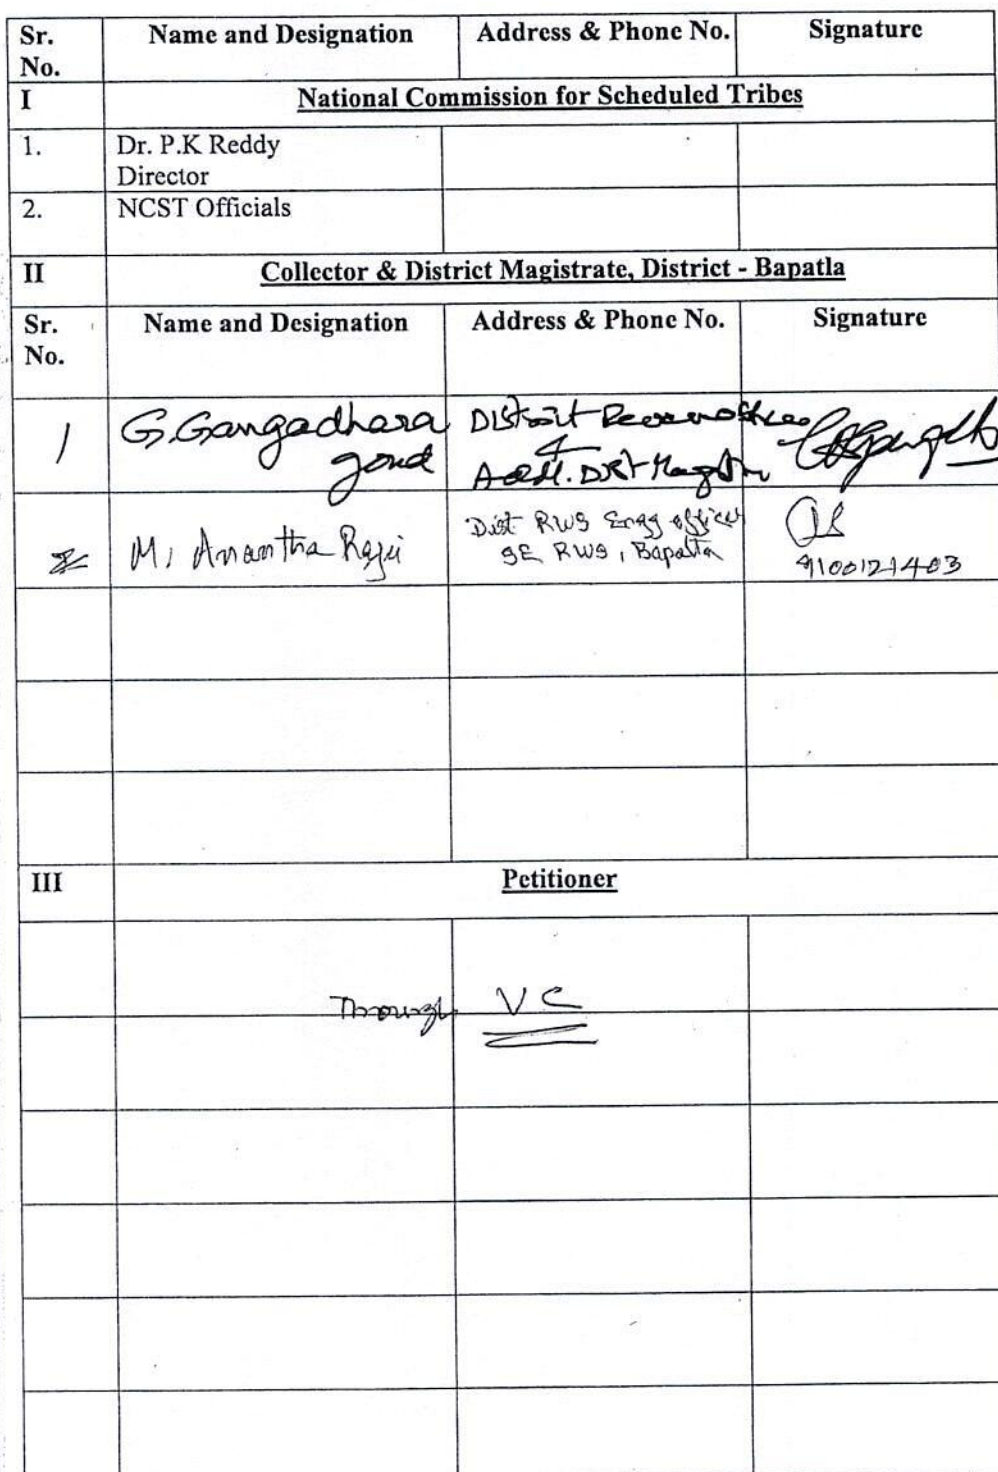 Sr. No. Name and Designation Address & Phone No. Signature
I National Commission for Scheduled Tribes
1. Dr. P.K Reddy
Director
2. NCST Officials
II Collector & District Magistrate, District - Bapatla
Sr. No. Name and Designation Address & Phone No. Signature
1 G. Gangadhara
goud
District Revenue officer
&
Addl. Dist Magistrate
2 M. Anantha Raju
Dist RWS Engg officer
SE RWS, Bapatla
9100121403
III Petitioner
Through VC